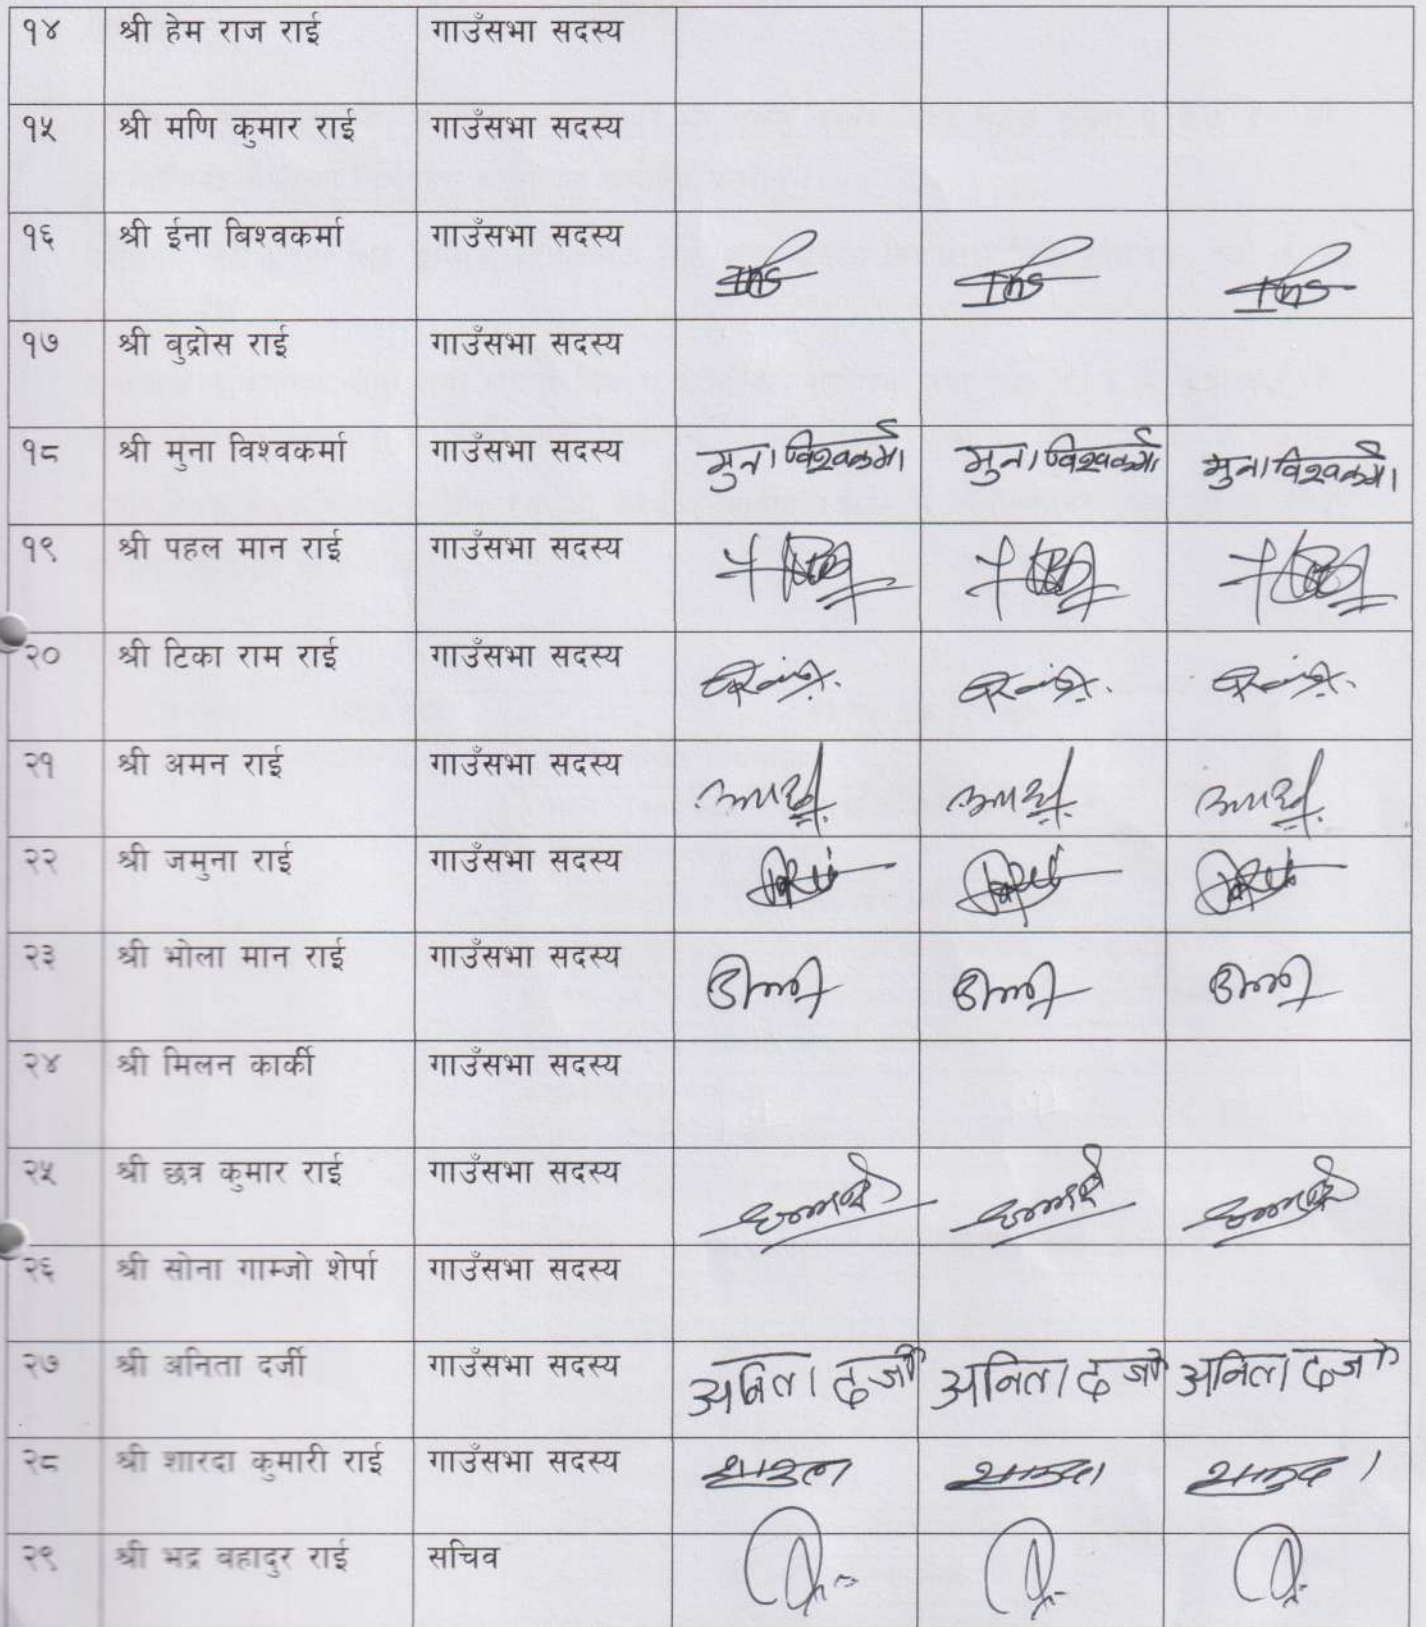 १४ श्री हेम राज राई गाउँसभा सदस्य
१५ श्री मणि कुमार राई गाउँसभा सदस्य
१६ श्री ईना विश्वकर्मा गाउँसभा सदस्य
१७ श्री बुद्रोस राई गाउँसभा सदस्य
१८ श्री मुना विश्वकर्मा गाउँसभा सदस्य मुना विश्वकर्मा मुना विश्वकर्मा मुना विश्वकर्मा
१९ श्री पहल मान राई गाउँसभा सदस्य
२० श्री टिका राम राई गाउँसभा सदस्य
२१ श्री अमन राई गाउँसभा सदस्य
२२ श्री जमुना राई गाउँसभा सदस्य
२३ श्री भोला मान राई गाउँसभा सदस्य
२४ श्री मिलन कार्की गाउँसभा सदस्य
२५ श्री छत्र कुमार राई गाउँसभा सदस्य
२६ श्री सोना गाम्जो शेर्पा गाउँसभा सदस्य
२७ श्री अनिता दर्जी गाउँसभा सदस्य अनिता दर्जी अनिता दर्जी अनिता दर्जी
२८ श्री शारदा कुमारी राई गाउँसभा सदस्य
२९ श्री भद्र बहादुर राई सचिव